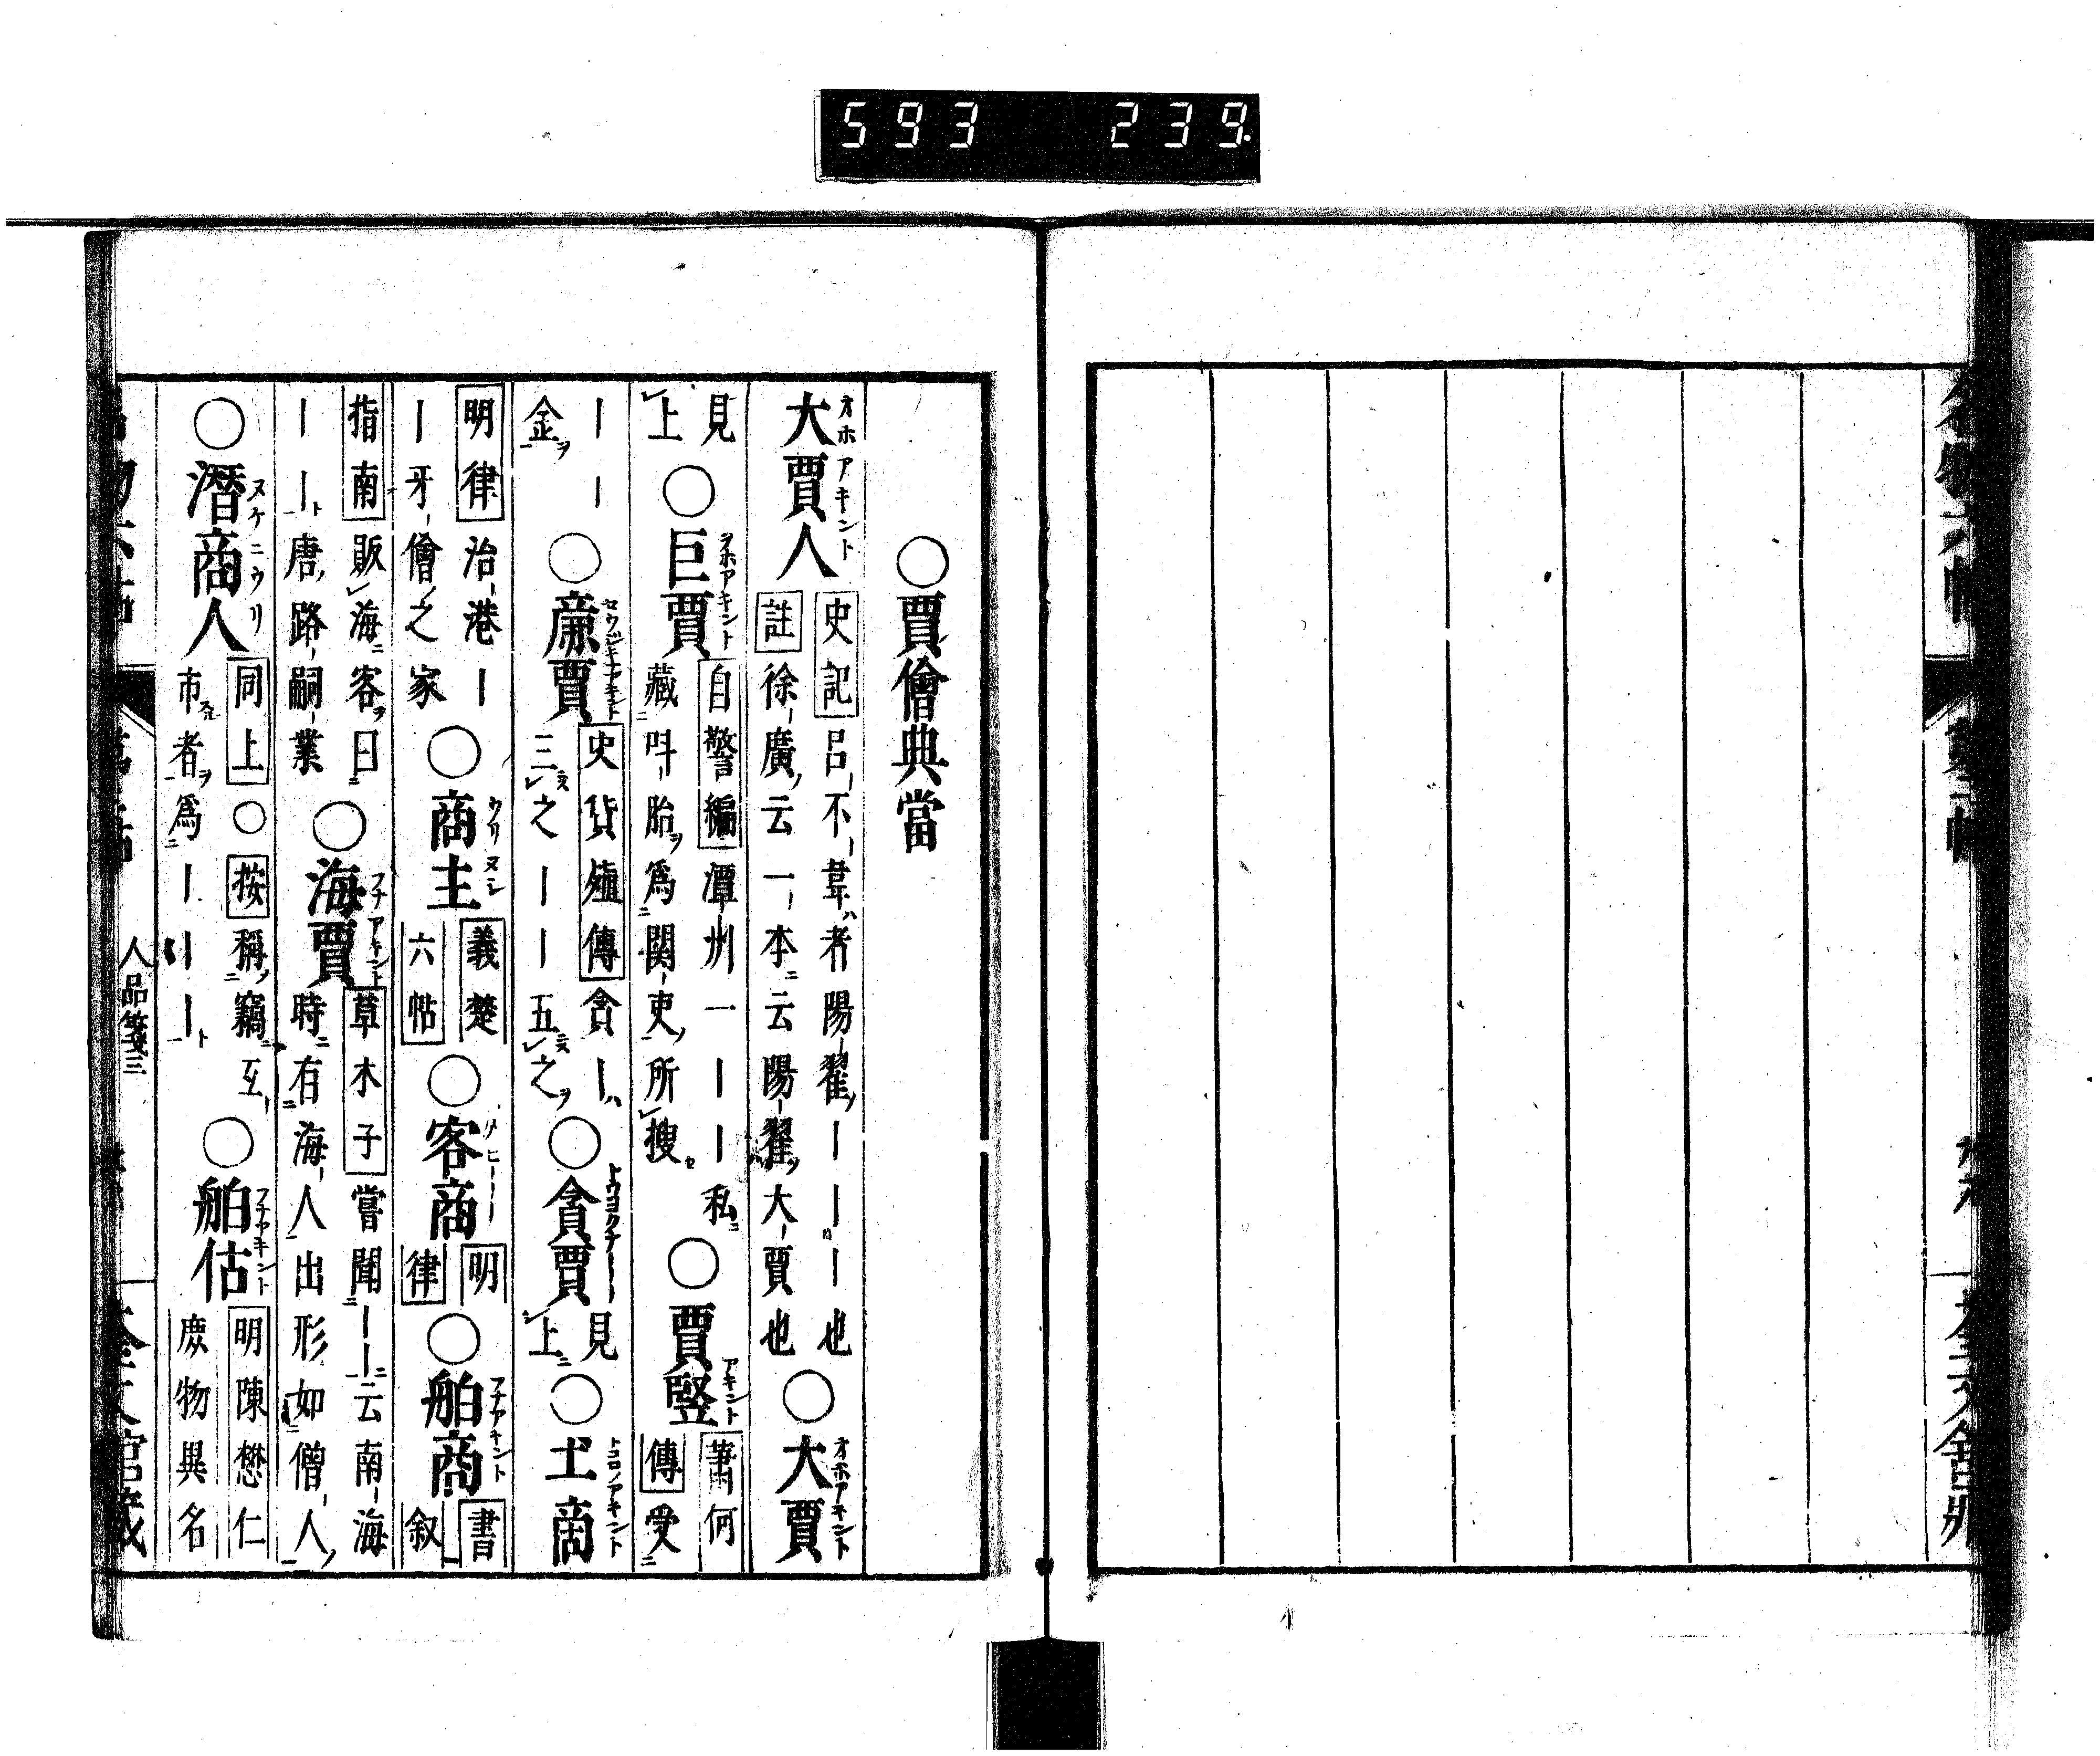 593 239
○賈儈典當
大賈人 史記呂不韋者陽翟｜｜｜也 註徐廣云一本云陽翟大賈也 ○大賈
見上 ○巨賈 自警編潭州一｜｜私藏吽胎爲関吏所搜 ○賈豎 蕭何傳受
｜｜金 ○亷賈 史貨殖傳貪｜三之｜｜五之 ○貪賈 見上 ○土商
明律治港｜｜牙儈之家 ○商主 義楚六帖 ○客商 明律 ○舶商 書叙
指南販海客曰｜｜唐路嗣業 ○海賈 草木子嘗聞｜｜云南海時有海人出形如僧人
○潛商人 同上○按稱竊互市者爲｜｜｜ ○舶估 明陳懋仁庶物異名
人品箋三